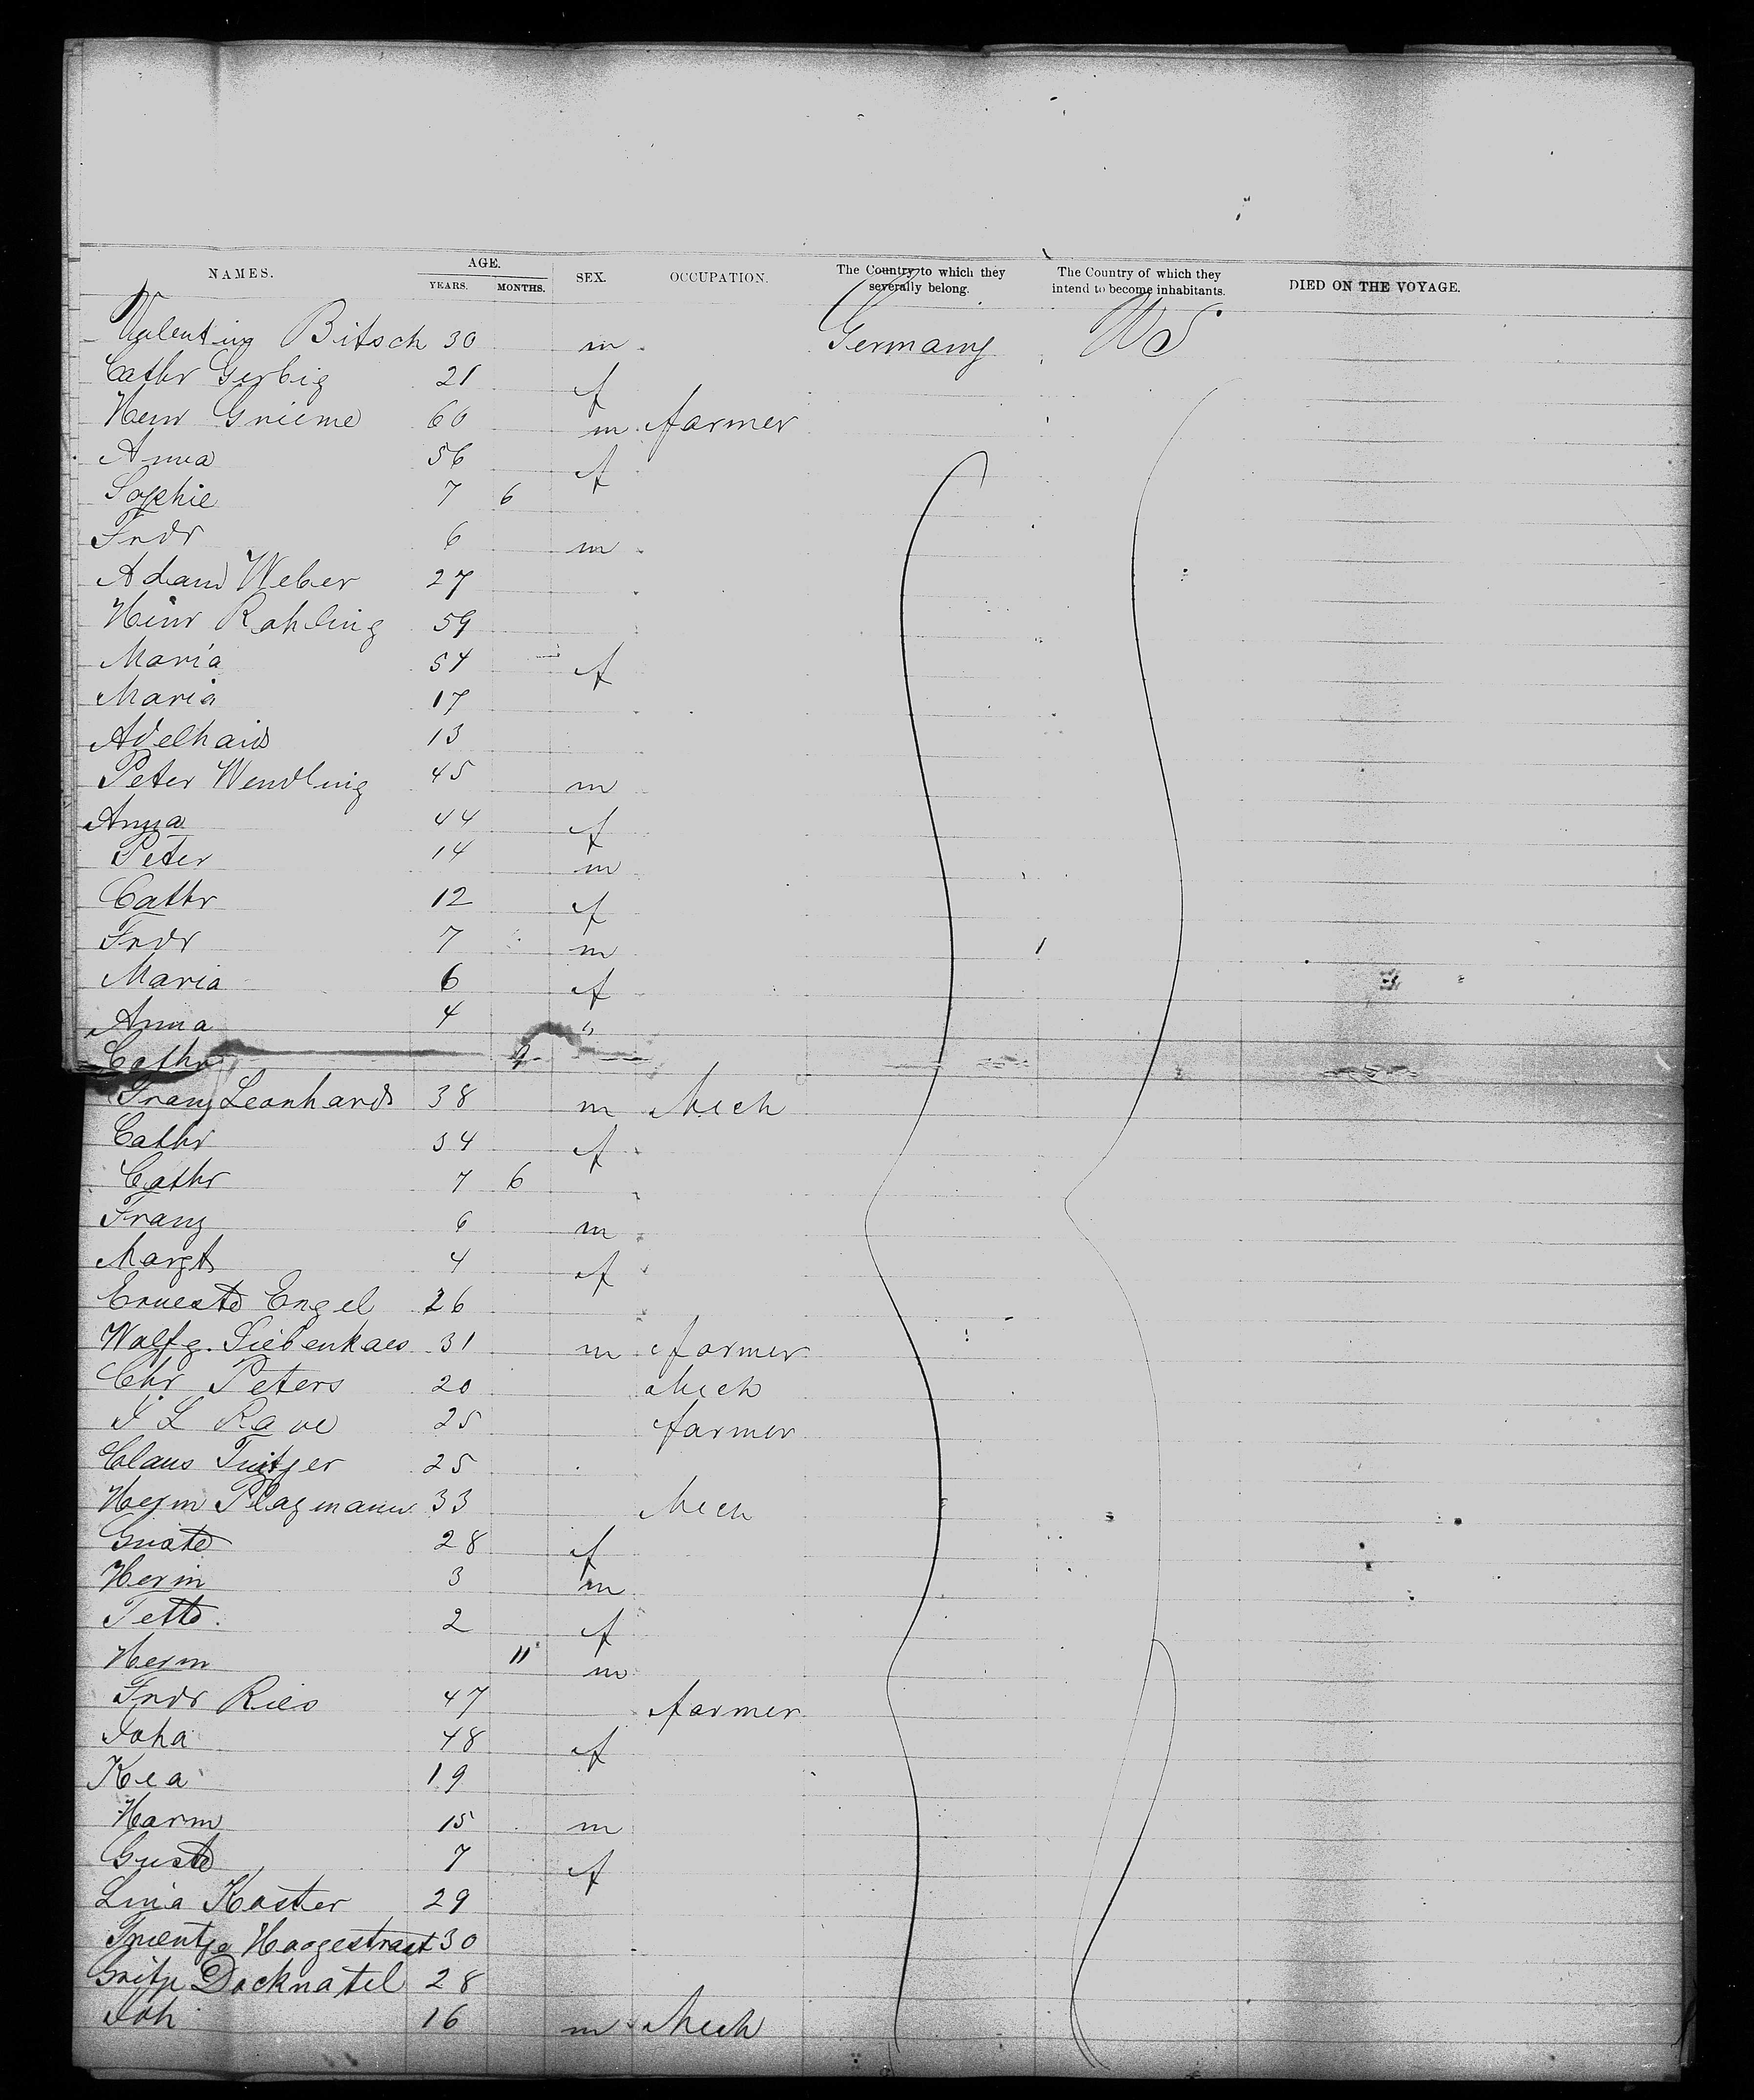 NAMES. AGE. SEX. OCCUPATION. The Country to which they severally belong. The Country of which they intend to become inhabitants. DIED ON THE VOYAGE.
YEARS. MONTHS.
Valentin Bitsch 30 m Germany US
Cathr Gerbig 21 f
Heinr Grieme 60 m farmer
Anna 56 f
Sophie 7 6
Frdr 6 m
Adam Weber 27
Heinr Rahling 59
Maria 54 f
Maria 17
Adelhaid 13
Peter Wendling 45 m
Anna 44 f
Peter 14 m
Cathr 12 f
Frdr 7 m
Maria 6 f
Anna 4 "
Cathr 9
Franz Leonhards 38 m Mech
Cathr 34 f
Cathr 7 6
Franz 6 m
Margt 4 f
Ernest Engel 26
Wolfg. Siebenkaes 31 m farmer
Chr Peters 20 Mech
J L Rave 25 farmer
Claus Tuitjer 25
Herm Plagmann 33 Mech
28 f
Herm 3 m
2 f
Herm 11 m
Frdr Ries 47 farmer
Joha 48 f
Kea 19
Harm 15 m
7 f
Lina Koster 29
Trientje Hoogestraat 30
Gretje Docknatel 28
Joh 16 m Mech